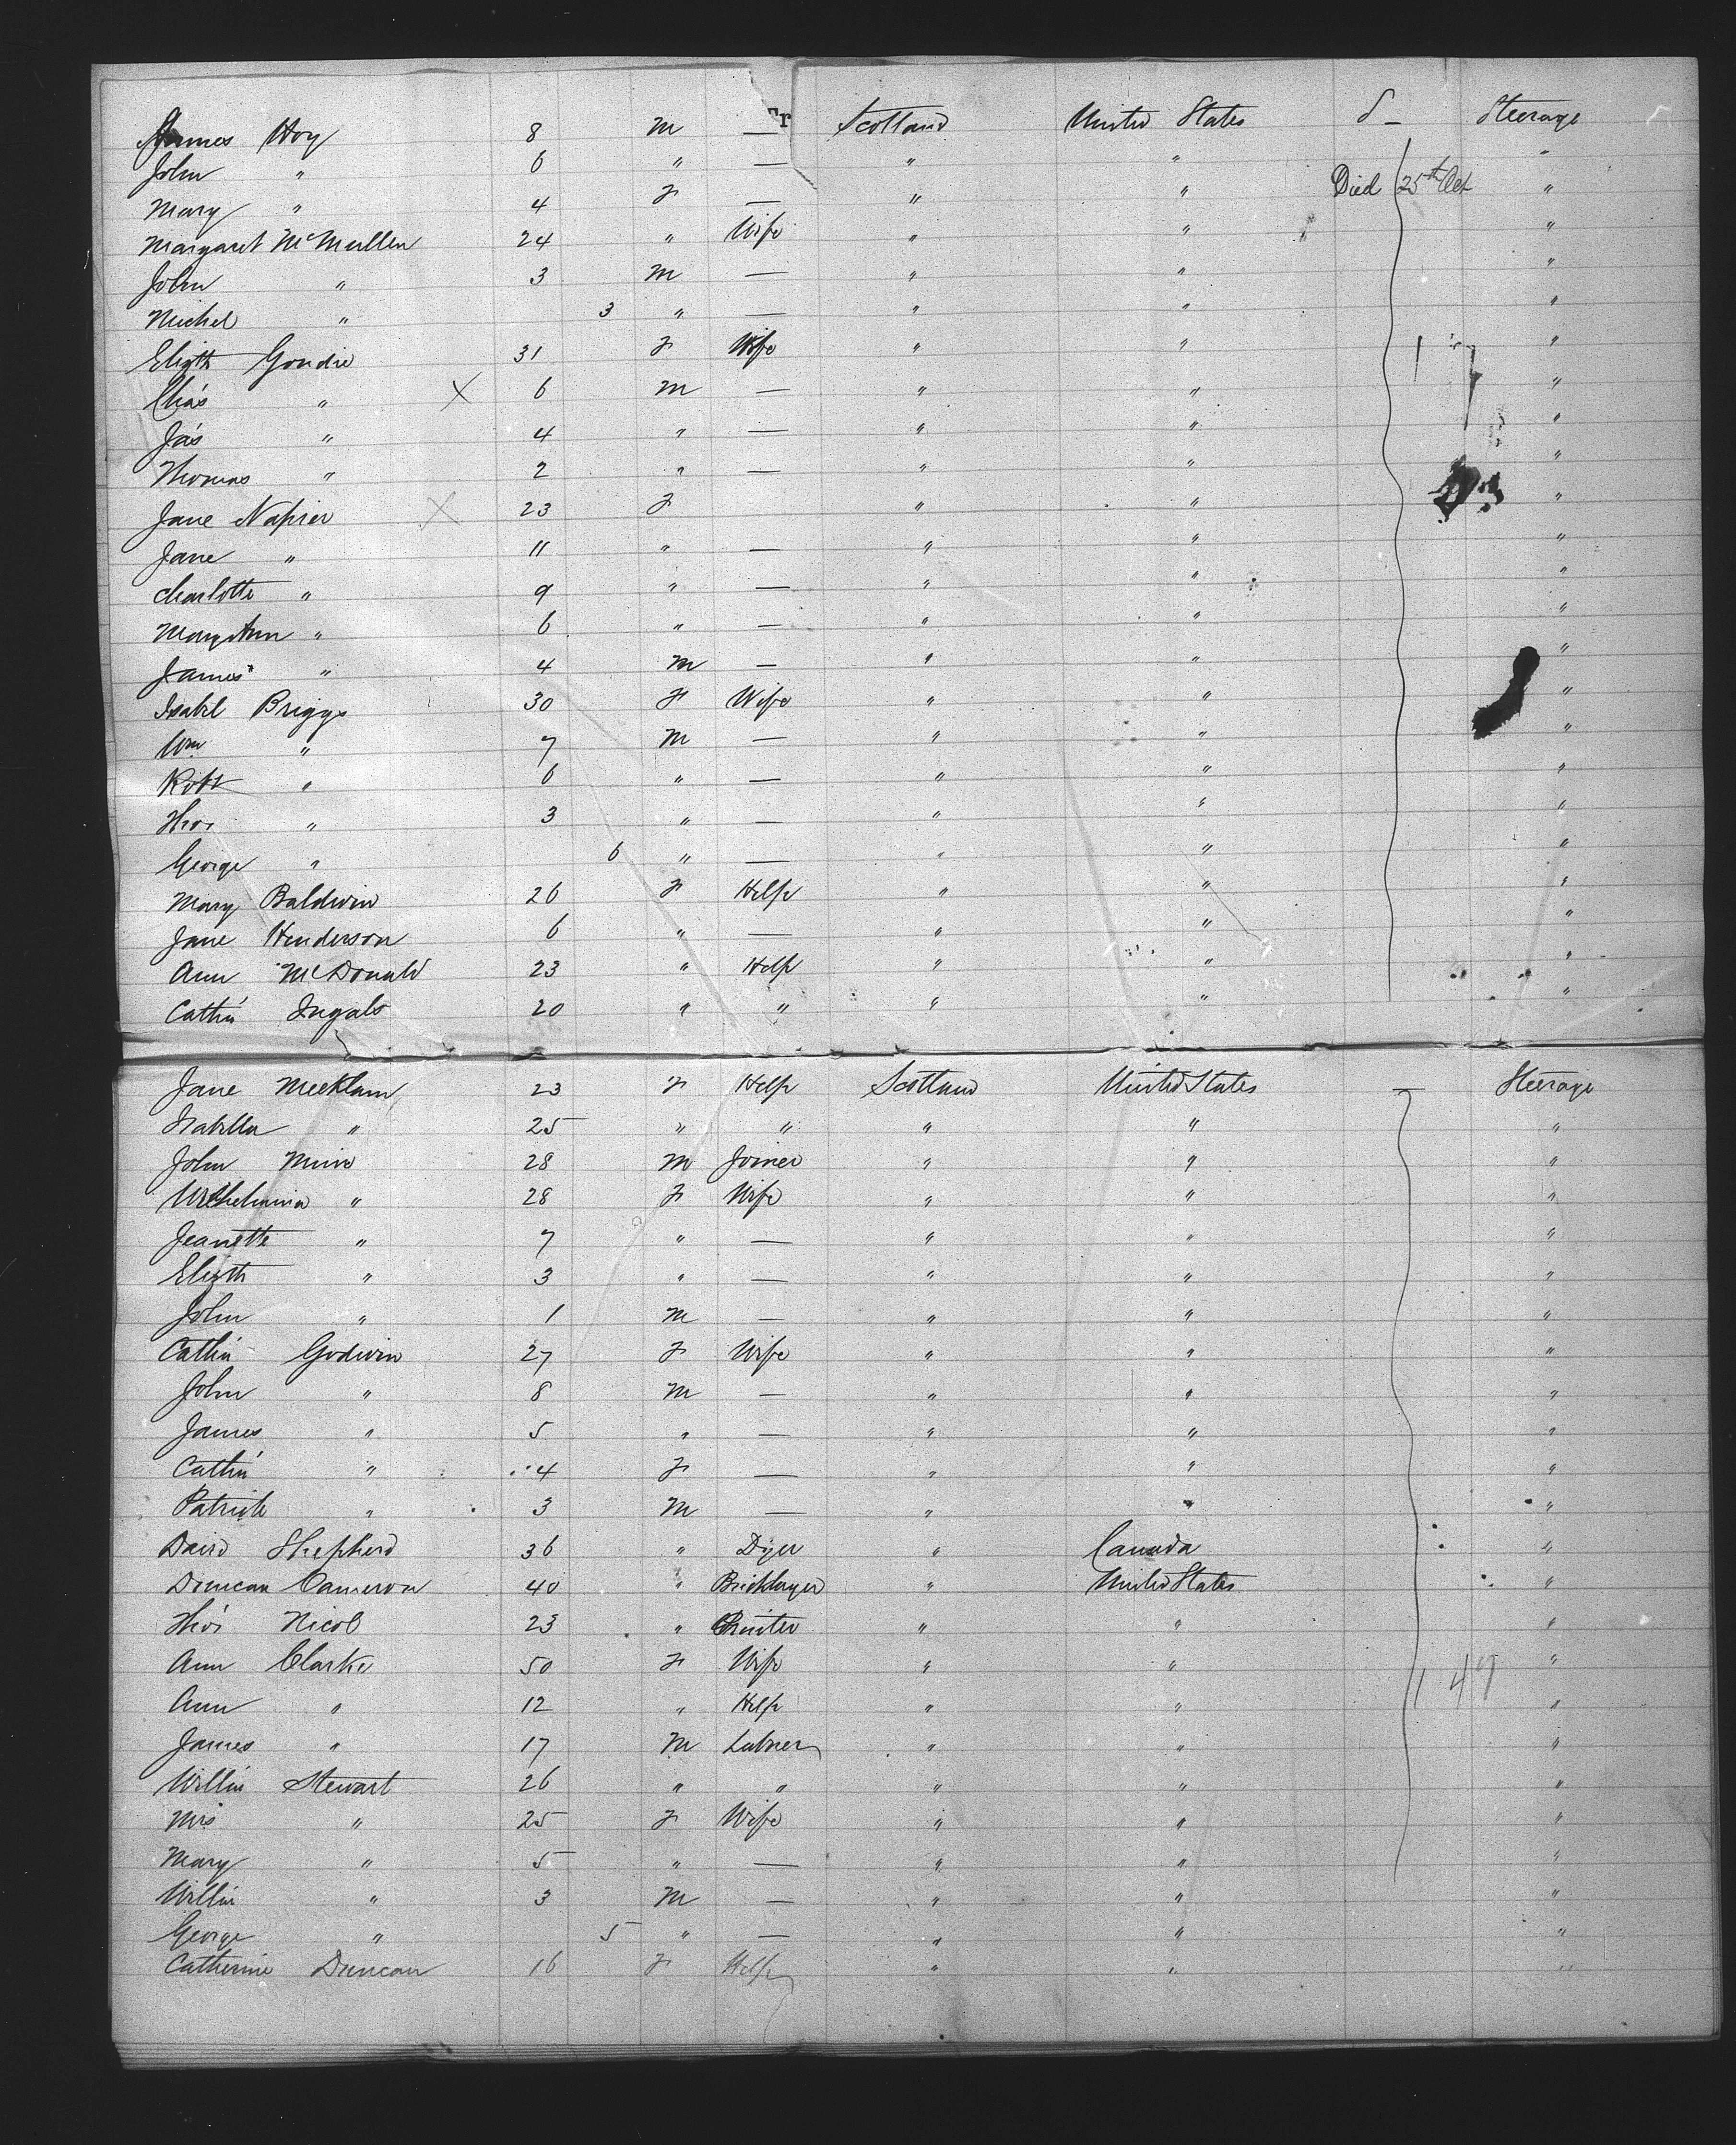 James Hoy 8 M — Scotland United States — Steerage
John " 6 " — " " "
Mary " 4 F — " " Died 25th Oct "
Margaret McMullen 24 " Wife " " "
John " 3 M — " " "
Michel " 3 " — " " "
Elizth Goudie 31 F Wife " " "
Chas " X 6 M — " " "
Jas " 4 " — " " "
Thomas " 2 " — " " "
Jane Napier X 23 F " " "
Jane " 11 " — " " "
Charlotte " 9 " — " " "
Mary Ann " 6 " — " " "
James " 4 M — " " "
Isabel Briggs 30 F Wife " " "
Wm " 7 M — " " "
Robt " 6 " — " " "
Thos " 3 " — " " "
George " 6 " — " " "
Mary Baldwin 26 F Help " " "
Jane Henderson 6 " — " " "
Ann McDonald 23 " Help " " "
Cathn Ingals 20 " " " " "
Jane Meeklam 23 F Help Scotland United States — Steerage
Isabella " 25 " " " " "
John Muir 28 M Joiner " " "
Wilhelmina " 28 F Wife " " "
Jeanette " 7 " — " " "
Elizth " 3 " — " " "
John " 1 M — " " "
Cathn Godwin 27 F Wife " " "
John " 8 M — " " "
James " 5 " — " " "
Cathn " 4 F — " " "
Patrick " 3 M — " " "
David Shepherd 36 " Dyer " Canada "
Duncan Cameron 40 " Bricklayer " United States "
Thos Nicol 23 " Printer " " "
Ann Clarke 50 F Wife " " "
Ann " 12 " Help " " 147 "
James " 17 M Labourer " " "
Willm Stewart 26 " " " " "
Mrs " 25 F Wife " " "
Mary " 5 " — " " "
Willm " 3 M — " " "
George " 5 " — " " "
Catherine Duncan 16 F Help " " "